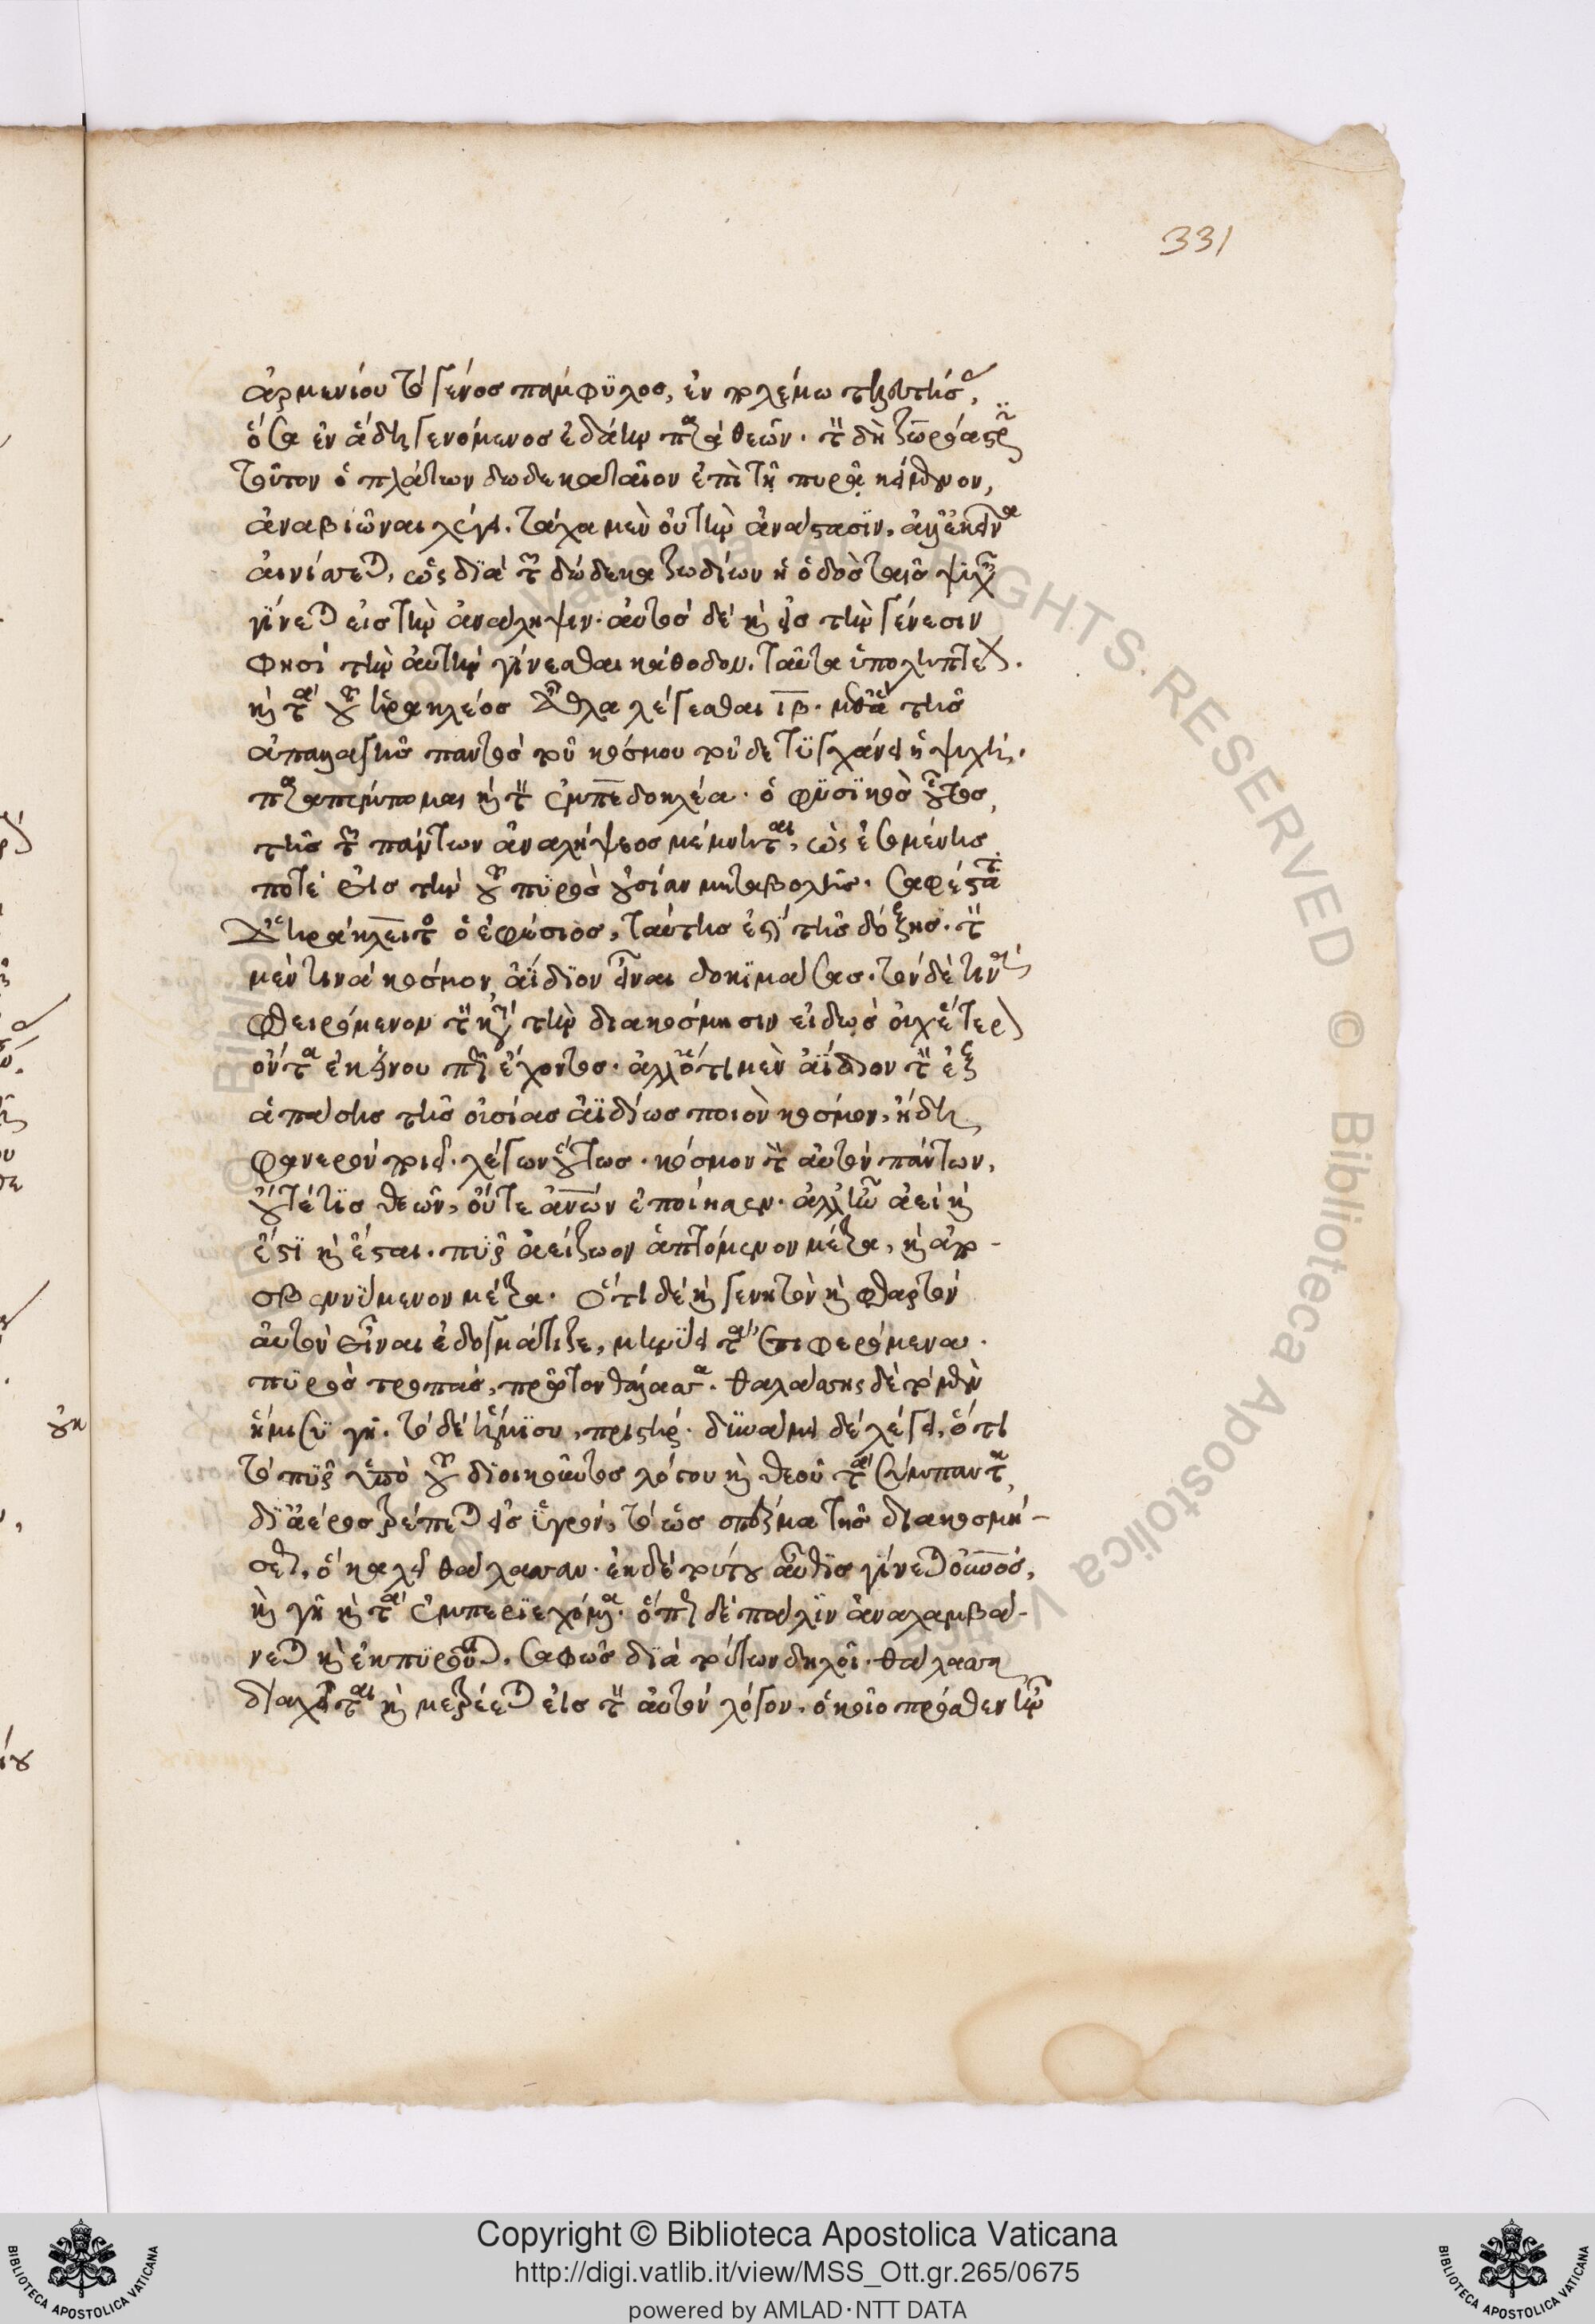 331
ἀρμενίου τὸ γένος παμφύλος, ἐν πολέμω τελευτήσας,
ὅσα ἐν ἅδη γενόμενος ἐδάην παρὰ θεῶν. τὸν δὴ ζωροάστρην
τοῦτον ὁ πλάτων δωδεκαταῖον ἐπὶ τῆ πυρᾶ κείμενον,
ἀναβιῶναι λέγει. τάχα μὲν οὖν τὴν ἀνάστασιν, τάχα δὲ ἐκεῖνα
αἰνίσσεται, ὡς διὰ τῶν δώδεκα ζωδίων ἡ ὁδὸς ταῖς ψυχαῖς
γίνεται εἰς τὴν ἀνάληψιν. αὐτὸς δὲ καὶ εἰς τὴν γένεσιν
φησὶ τὴν αὐτὴν γίνεσθαι κάθοδον. ταύτη ὑποληπτέον
καὶ τὰ τοῦ ἡρακλέος ἆθλα λέγεσθαι ιβ. μεθ' ἃ τῆς
ἀπαλλαγῆς παντὸς τοῦ κόσμου τοῦδε τυγχάνει ἡ ψυχή.
παραπέμπομαι καὶ τὸν ἐμπεδοκλέα. ὃ φυσικὸς οὗτος
τῆς τῶν πάντων ἀναλήψεος μέμνηται, ὡς ἐσομένης
ποτὲ εἰς τὴν τοῦ πυρὸς οὐσίαν μεταβολῆς. σαφέστατα
δ' ἡράκλειτος ὁ ἐφέσιος, ταύτης ἐστὶ τῆς δόξης. τὸν
μὲν τινὰ κόσμον ἀΐδιον εἶναι δοκιμάσας. τὸν δὲ τινὰ
φθειρόμενον τὸν κατὰ τὴν διακόσμησιν εἰδὼς οὐχ ἕτερον
ὄντα ἐκείνου πως ἔχοντος. ἀλλ' ὅτι μὲν ἀΐδιον τὸν ἐξ
ἁπάσης τῆς οὐσίας ἀϊδίως ποιὸν κόσμον, ἤδη
φανερὸν ποιεῖ. λέγων οὕτως. κόσμον τὸν αὐτὸν πάντων,
οὔτέ τις θεῶν, οὔτε ἀνων ἐποίησεν. ἀλλ' ἦν ἀεὶ καὶ
ἔστι καὶ ἔσται. πῦρ ἀείζωον ἁπτόμενον μέτρα, καὶ ἀπο-
σβεννύμενον μέτρα. ὅτι δὲ καὶ γενητὸν καὶ φθαρτὸν
αὐτὸν εἶναι ἐδογμάτιζε, μηνύει τὰ ἐπιφερόμενα.
πυρὸς τροπαὶ, πρῶτον θάλασσα. θαλάσσης δὲ τὸ μὲν
ἥμισυ γῆ. τὸ δὲ ἥμισυ, πρηστήρ. δυνάμει δὲ λέγει, ὅτι
τὸ πῦρ ὑπὸ τοῦ διοικοῦντος λόγου καὶ θεοῦ τὰ σύμπαντα,
δι' ἀέρος τρέπεται εἰς ὑγρὸν, τὸ ὡς σπέρμα τῆς διακοσμή-
σεως, ὃ καλεῖ θάλασσαν. ἐκ δὲ τούτου αὖθις γίνεται οὐνος,
καὶ γῆ καὶ τὰ ἐμπεριεχόμενα. ὅπως δὲ πάλιν ἀναλαμβά-
νεται καὶ ἐκπυροῦται. σαφῶς διὰ τούτων δηλοῖ. θάλασσα
διαχέεται καὶ μετρέεται εἰς τὸν αὐτὸν λόγον. ὁκοῖο πρόσθεν ἦν
Copyright © Biblioteca Apostolica Vaticana
http://digi.vatlib.it/view/MSS_Ott.gr.265/0675
powered by AMLAD·NTT DATA